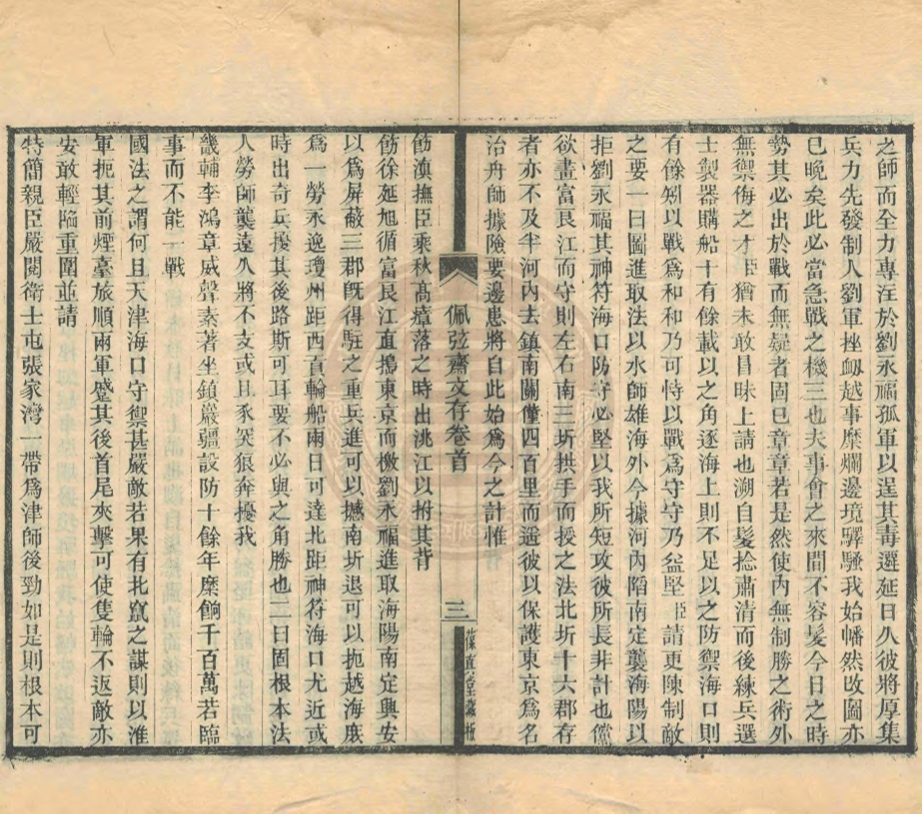 之師而全力專注於劉永福孤軍以逞其毒遷延日久彼將厚集
兵力先發制人劉軍挫衂越事糜爛邊境驛騷我始幡然改圖亦
已晚矣此必當急戰之機三也夫事會之來間不容髮今日之時
勢其必出於戰而無疑者固已章章若是然使內無制勝之術外
無禦侮之才臣猶未敢冒昧上請也溯自髮捻肅清而後練兵選
士製器購船十有餘載以之角逐海上則不足以之防禦海口則
有餘矧以戰爲和和乃可恃以戰爲守守乃益堅臣請更陳制敵
之要一曰圖進取法以水師雄海外今據河內陷南定襲海陽以
拒劉永福其神符海口防守必堅以我所短攻彼所長非計也儻
欲畫富良江而守則左右南三圻拱手而授之法北圻十六郡存
者亦不及半河內去鎮南關僅四百里而遥彼以保護東京爲名
治舟師據險要邊患將自此始爲今之計惟
佩弦齋文存卷首
三
葆真堂叢稿
飭滇撫臣乘秋高瘴落之時出洮江以拊其背
飭徐延旭循富良江直搗東京而檄劉永福進取海陽南定興安
以爲屏蔽三郡旣得駐之重兵進可以撼南圻退可以扼越海庶
爲一勞永逸瓊州距西貢輪船兩日可達北距神符海口尤近或
時出奇兵擾其後路斯可耳要不必與之角勝也二曰固根本法
人勞師襲遠久將不支或且豕突狼奔擾我
畿輔李鴻章威聲素著坐鎮巖疆設防十餘年糜餉千百萬若臨
事而不能一戰
國法之謂何且天津海口守禦甚嚴敵若果有北竄之謀則以淮
軍扼其前煙臺旅順兩軍躡其後首尾夾擊可使隻輪不返敵亦
安敢輕臨重圍並請
特簡親臣嚴閱衛士屯張家灣一帶爲津師後勁如是則根本可